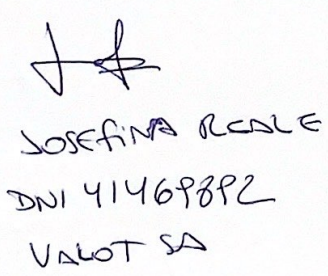 JOSEFINA REALE
DNI 41469892
VALOT SA